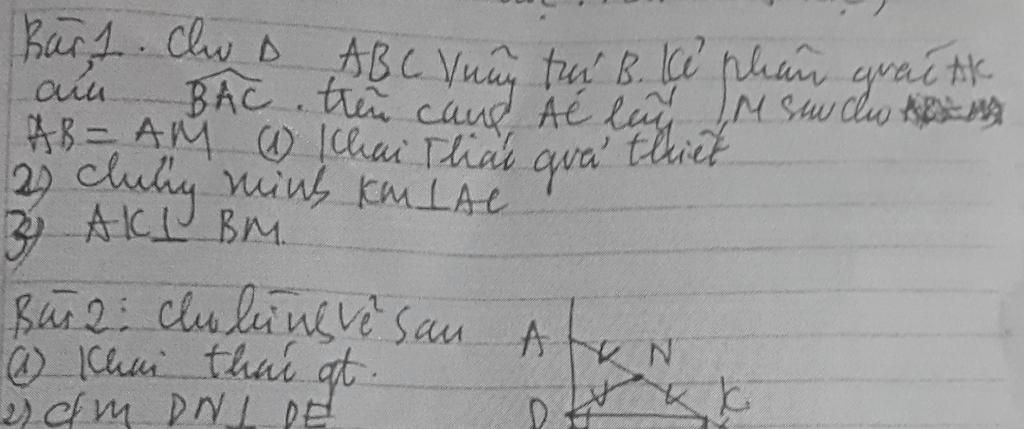 Bài 1. Cho Δ ABC Vuông tại B. Kẻ phân giác AK
của BAC. trên cạnh AC lấy M sao cho
AB = AM 1) Khai Thác giả thiết
2) Chứng minh KM⊥AC
3) AK⊥ BM.
Bài 2: Cho hình vẽ sau
1) Khai thác gt.
2) c/m DN⊥ DE
A N
D K